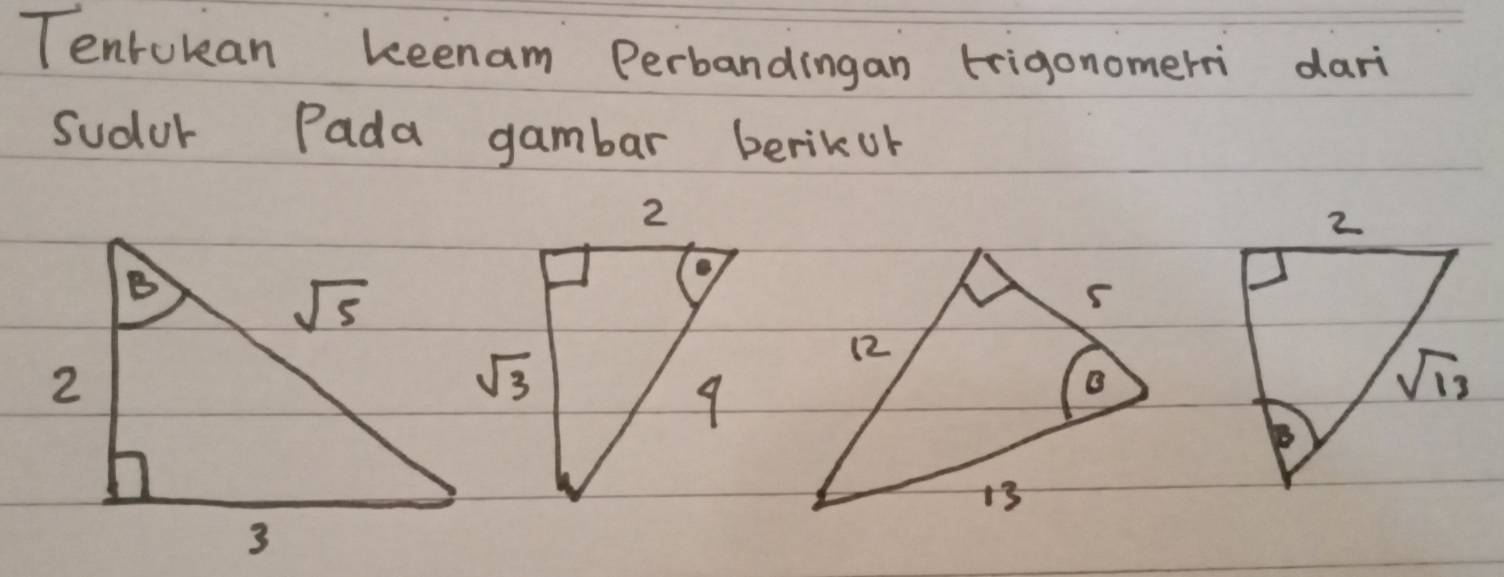 Tentukan keenam Perbandingan trigonometri dari
sudut Pada gambar berikut
B √5 2 3
2 √3 4
5 12 B 13
2 √13 B